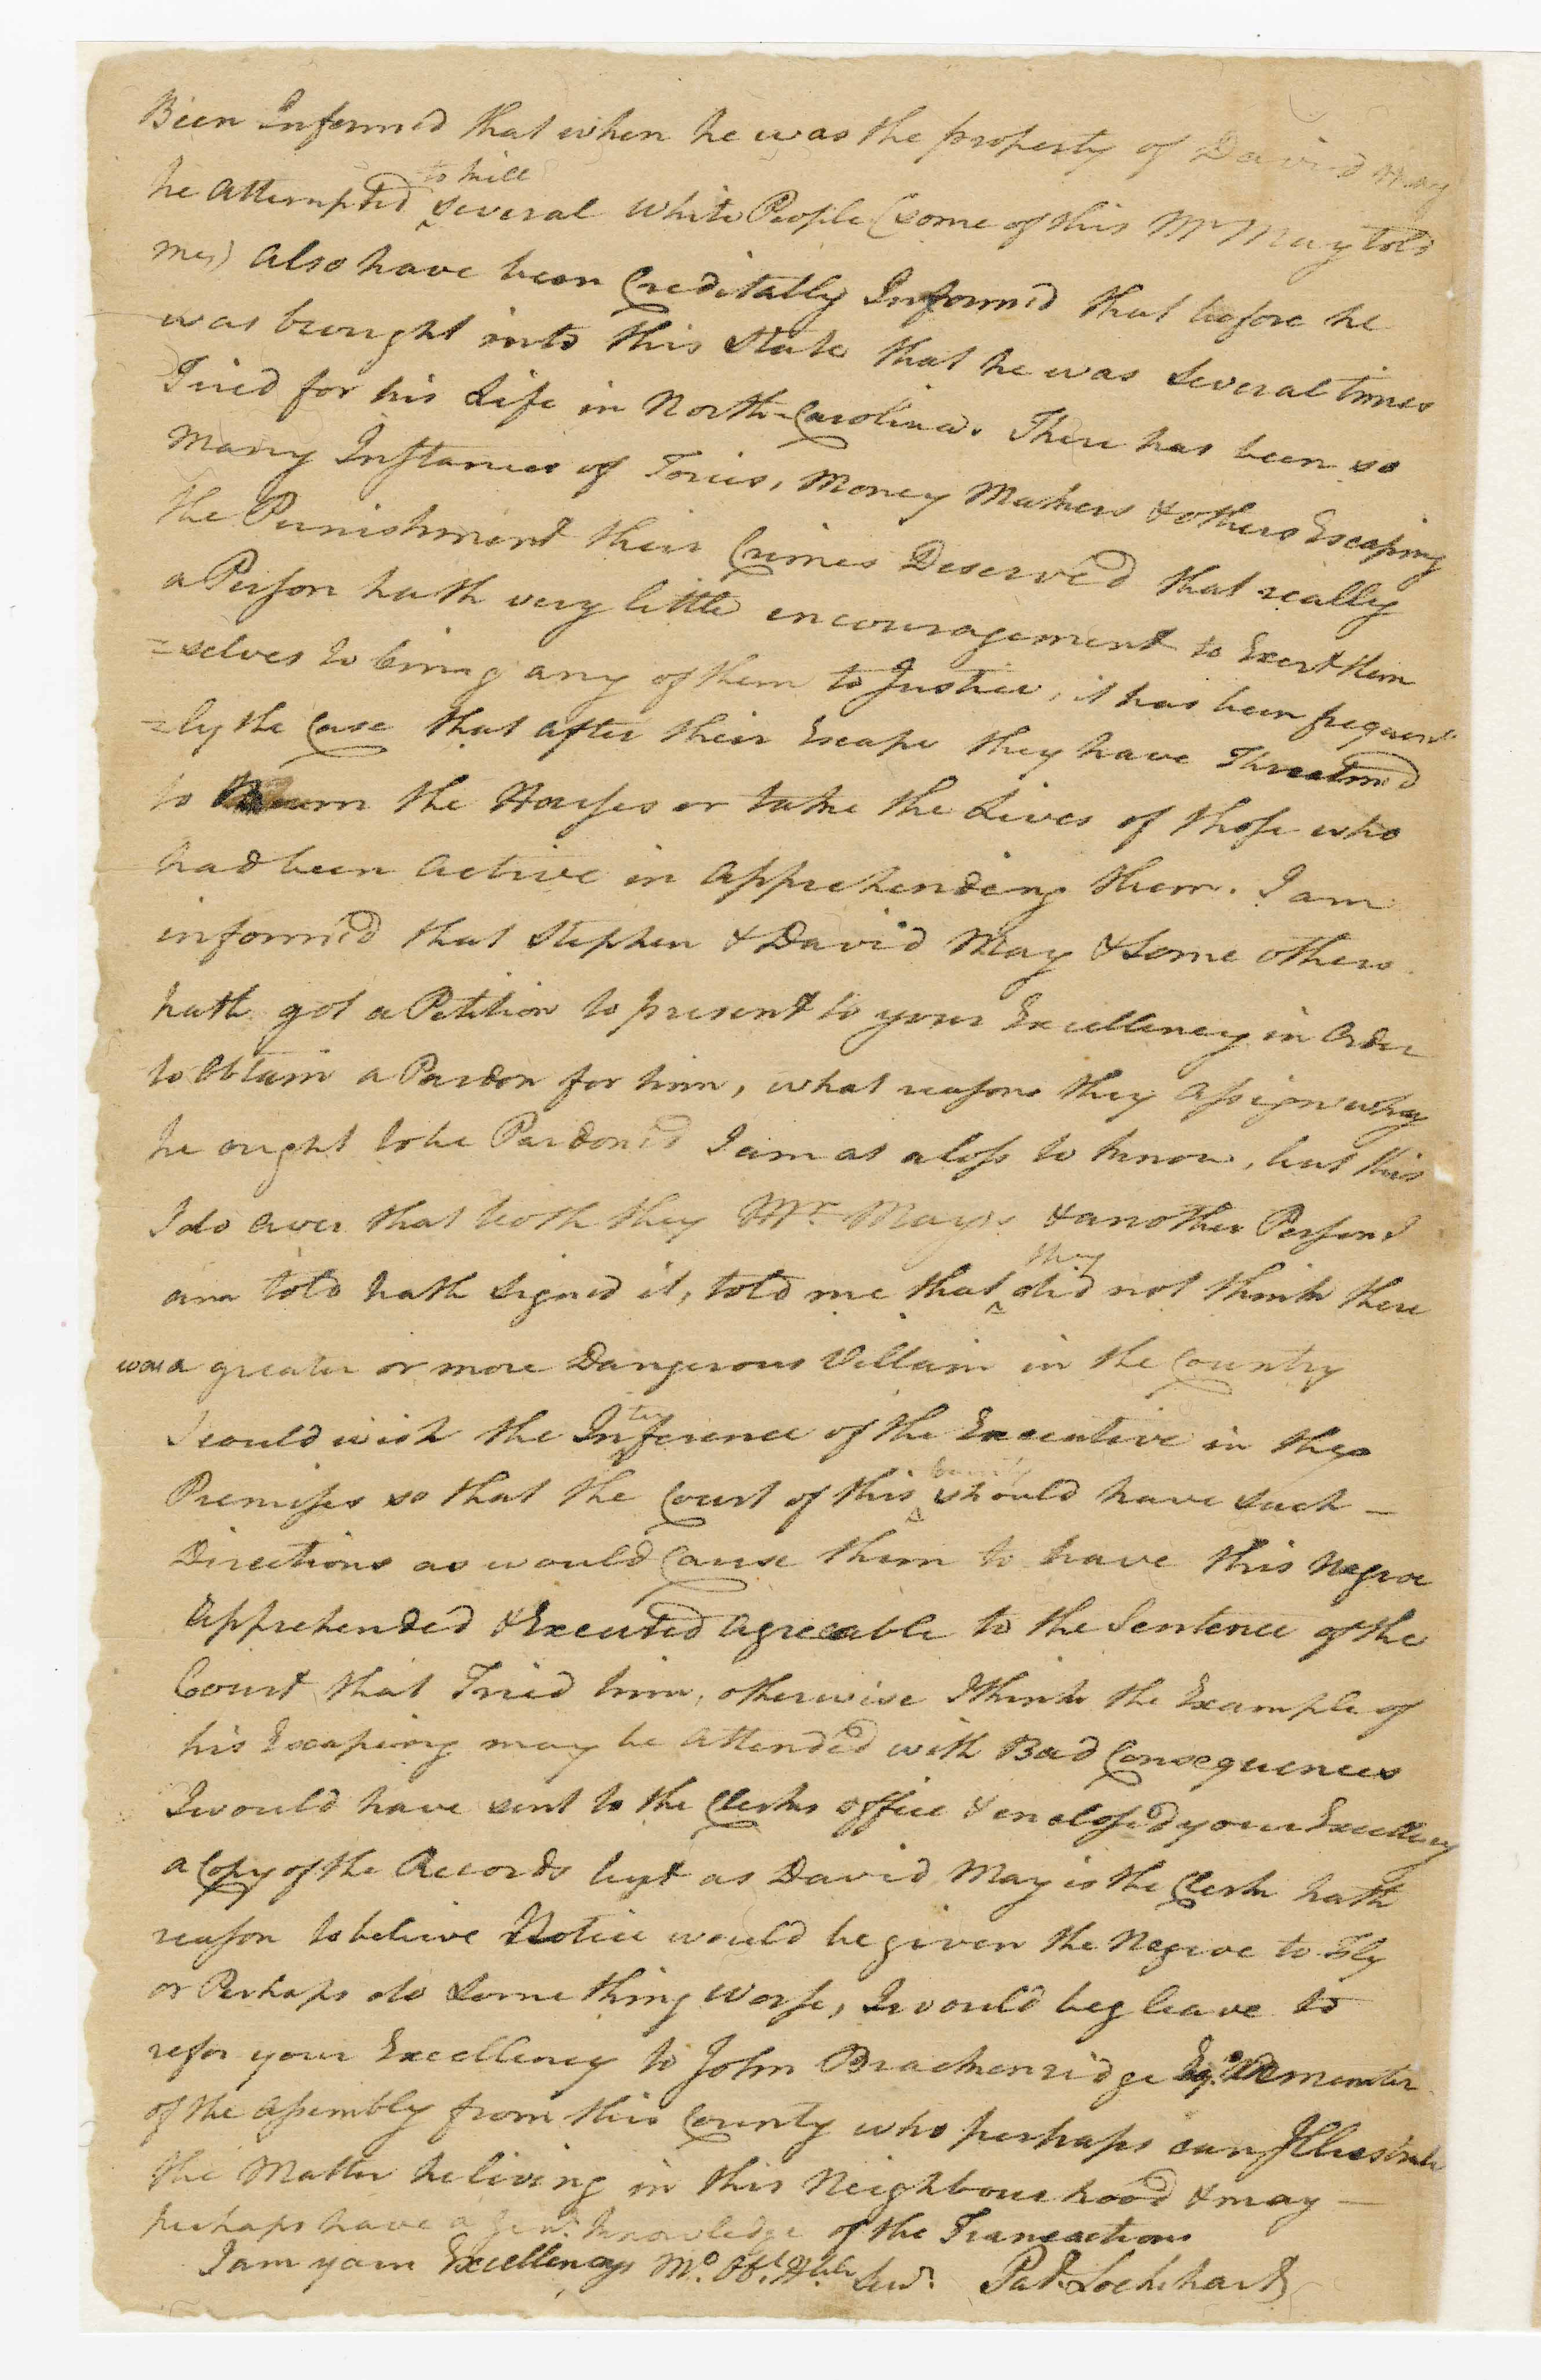 Been Informed that when he was the property of David May
he attempted to kill several white People (some of this Mr May told
me) also have been Creditably Informed that before he
was brought into this State that he was several times
Tried for his Life in North-Carolina. There has been so
many Instances of Tories, Money Makers & others Escaping
the Punishment their Crimes Deserved that really
a Person hath very little encouragement to Exert them
=selves to bring any of them to Justice, it has been frequent
=ly the Case that after their Escape they have Threatned
to Burn the Houses or take the Lives of those who
had been active in apprehending them. I am
informed that Stephen & David May & Some others
hath got a Petition to present to your Excellency in Order
to Obtain a Pardon for him, what reasons they assign why
he ought to be Pardoned I am at a loss to know, but this
I do aver that both they Mr. Mays & another Person I
am told hath signed it, told me that they did not think there
was a greater or more Dangerous Villain in the Country
I could wish the Interference of the Executive in the
Premises so that the Court of this County should have such —
Directions as would Cause them to have this Negroe
apprehended & Executed agreeable to the Sentence of the
Court that Tried him, otherwise I think the Example of
his Escapeing may be attended with Bad Consequences
I would have sent to the Clerks office & enclosed your Excellency
a Copy of the Records but as David May is the Clerk hath
reason to beleive Notice would be given the Negroe to Fly
or Perhaps do Something worse, I would beg leave to
refer your Excellency to John Brackenridge Esqr. member
of the assembly from this County who perhaps can Illustrate
the Matter he living in this Neighbourhood & may —
perhaps have a Genl. knowledge of the Transactions
I am your Excellencys Mo. Obt. Hble Servt. Pat. Lockhart